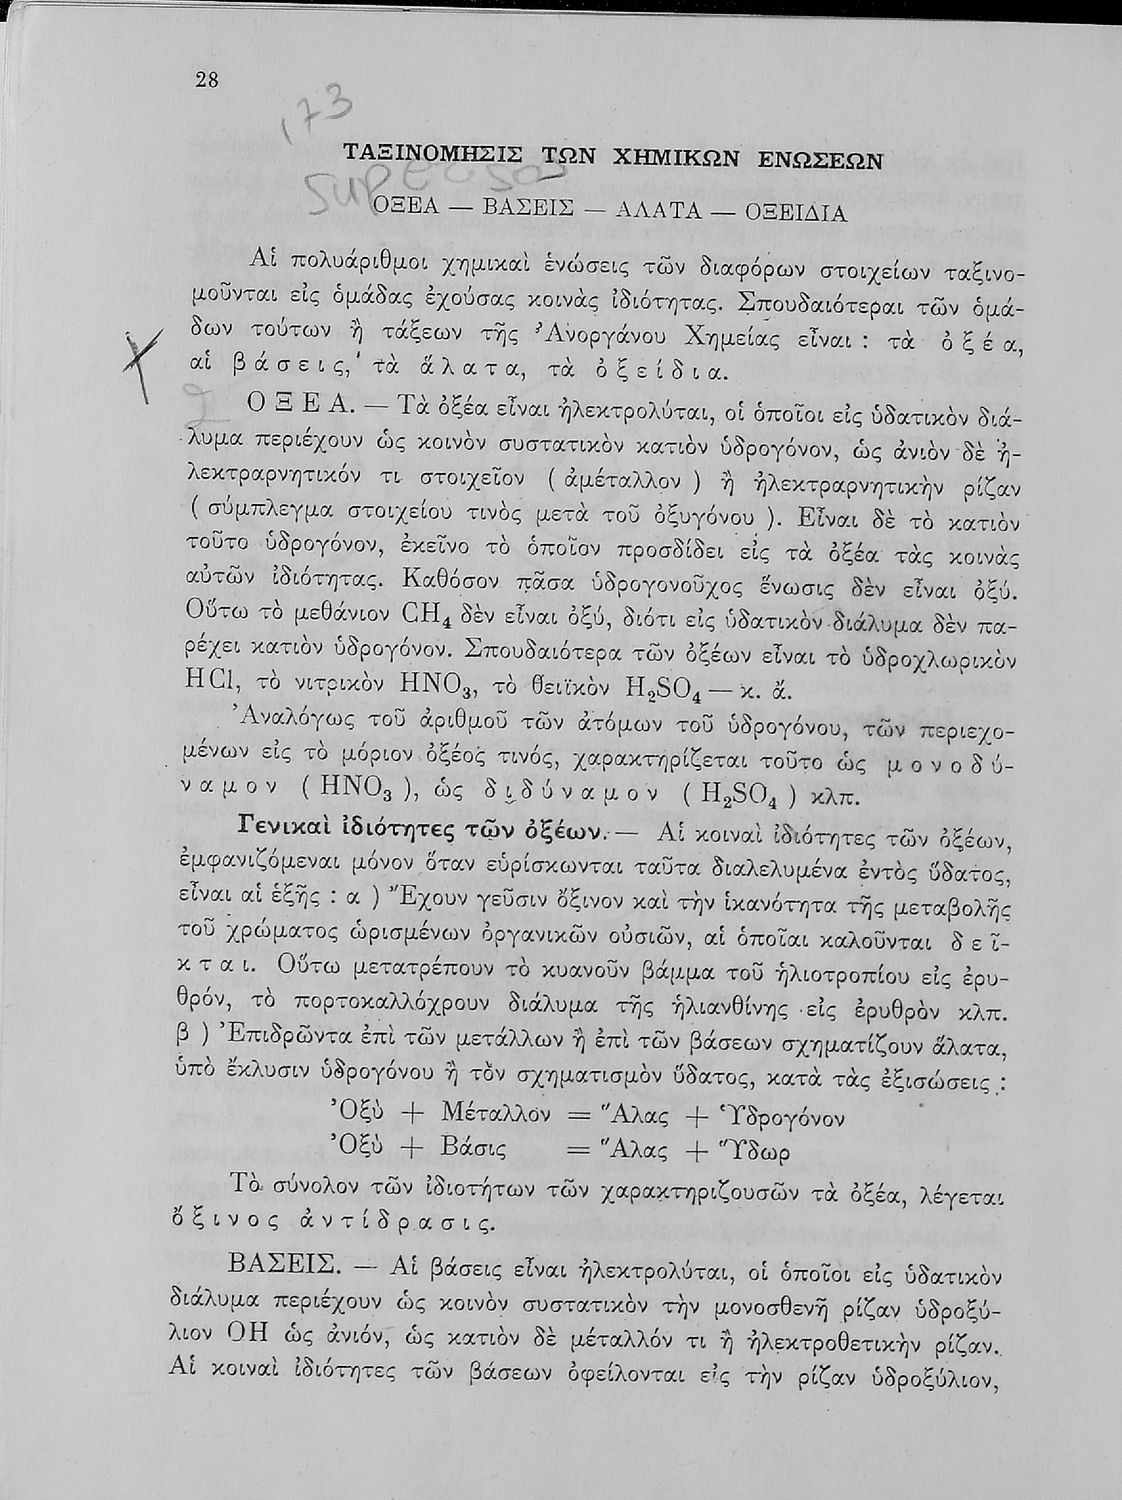 28
173
ΤΑΞΙΝΟΜΗΣΙΣ ΤΩΝ ΧΗΜΙΚΩΝ ΕΝΩΣΕΩΝ
ΟΞΕΑ — ΒΑΣΕΙΣ — ΑΛΑΤΑ — ΟΞΕΙΔΙΑ
Αἱ πολυάριθμοι χημικαὶ ἑνώσεις τῶν διαφόρων στοιχείων ταξινο-
μοῦνται εἰς ὁμάδας ἐχούσας κοινὰς ἰδιότητας. Σπουδαιότεραι τῶν ὁμά-
δων τούτων ἢ τάξεων τῆς Ἀνοργάνου Χημείας εἶναι : τὰ ὀξέα,
αἱ βάσεις, τὰ ἅλατα, τὰ ὀξείδια.
ΟΞΕΑ. — Τὰ ὀξέα εἶναι ἠλεκτρολύται, οἱ ὁποῖοι εἰς ὑδατικὸν διά-
λυμα περιέχουν ὡς κοινὸν συστατικὸν κατιὸν ὑδρογόνον, ὡς ἀνιὸν δὲ ἠ-
λεκτραρνητικόν τι στοιχεῖον ( ἀμέταλλον ) ἢ ἠλεκτραρνητικὴν ρίζαν
( σύμπλεγμα στοιχείου τινὸς μετὰ τοῦ ὀξυγόνου ). Εἶναι δὲ τὸ κατιὸν
τοῦτο ὑδρογόνον, ἐκεῖνο τὸ ὁποῖον προσδίδει εἰς τὰ ὀξέα τὰς κοινὰς
αὐτῶν ἰδιότητας. Καθόσον πᾶσα ὑδρογονοῦχος ἕνωσις δὲν εἶναι ὀξύ.
Οὕτω τὸ μεθάνιον CH₄ δὲν εἶναι ὀξύ, διότι εἰς ὑδατικὸν διάλυμα δὲν πα-
ρέχει κατιὸν ὑδρογόνον. Σπουδαιότερα τῶν ὀξέων εἶναι τὸ ὑδροχλωρικὸν
HCl, τὸ νιτρικὸν HNO₃, τὸ θειϊκὸν H₂SO₄ — κ. ἄ.
Ἀναλόγως τοῦ ἀριθμοῦ τῶν ἀτόμων τοῦ ὑδρογόνου, τῶν περιεχο-
μένων εἰς τὸ μόριον ὀξέος τινός, χαρακτηρίζεται τοῦτο ὡς μονοδύ-
ναμον ( HNO₃ ), ὡς διδύναμον ( H₂SO₄ ) κλπ.
Γενικαὶ ἰδιότητες τῶν ὀξέων. — Αἱ κοιναὶ ἰδιότητες τῶν ὀξέων,
ἐμφανιζόμεναι μόνον ὅταν εὑρίσκωνται ταῦτα διαλελυμένα ἐντὸς ὕδατος,
εἶναι αἱ ἑξῆς : α ) Ἔχουν γεῦσιν ὄξινον καὶ τὴν ἱκανότητα τῆς μεταβολῆς
τοῦ χρώματος ὡρισμένων ὀργανικῶν οὐσιῶν, αἱ ὁποῖαι καλοῦνται δεῖ-
κται. Οὕτω μετατρέπουν τὸ κυανοῦν βάμμα τοῦ ἡλιοτροπίου εἰς ἐρυ-
θρόν, τὸ πορτοκαλλόχρουν διάλυμα τῆς ἡλιανθίνης εἰς ἐρυθρὸν κλπ.
β ) Ἐπιδρῶντα ἐπὶ τῶν μετάλλων ἢ ἐπὶ τῶν βάσεων σχηματίζουν ἅλατα,
ὑπὸ ἔκλυσιν ὑδρογόνου ἢ τὸν σχηματισμὸν ὕδατος, κατὰ τὰς ἐξισώσεις :
Ὀξὺ + Μέταλλον = Ἅλας + Ὑδρογόνον
Ὀξὺ + Βάσις = Ἅλας + Ὕδωρ
Τὸ σύνολον τῶν ἰδιοτήτων τῶν χαρακτηριζουσῶν τὰ ὀξέα, λέγεται
ὄξινος ἀντίδρασις.
ΒΑΣΕΙΣ. — Αἱ βάσεις εἶναι ἠλεκτρολύται, οἱ ὁποῖοι εἰς ὑδατικὸν
διάλυμα περιέχουν ὡς κοινὸν συστατικὸν τὴν μονοσθενῆ ρίζαν ὑδροξύ-
λιον ΟΗ ὡς ἀνιόν, ὡς κατιὸν δὲ μέταλλόν τι ἢ ἠλεκτροθετικὴν ρίζαν.
Αἱ κοιναὶ ἰδιότητες τῶν βάσεων ὀφείλονται εἰς τὴν ρίζαν ὑδροξύλιον,